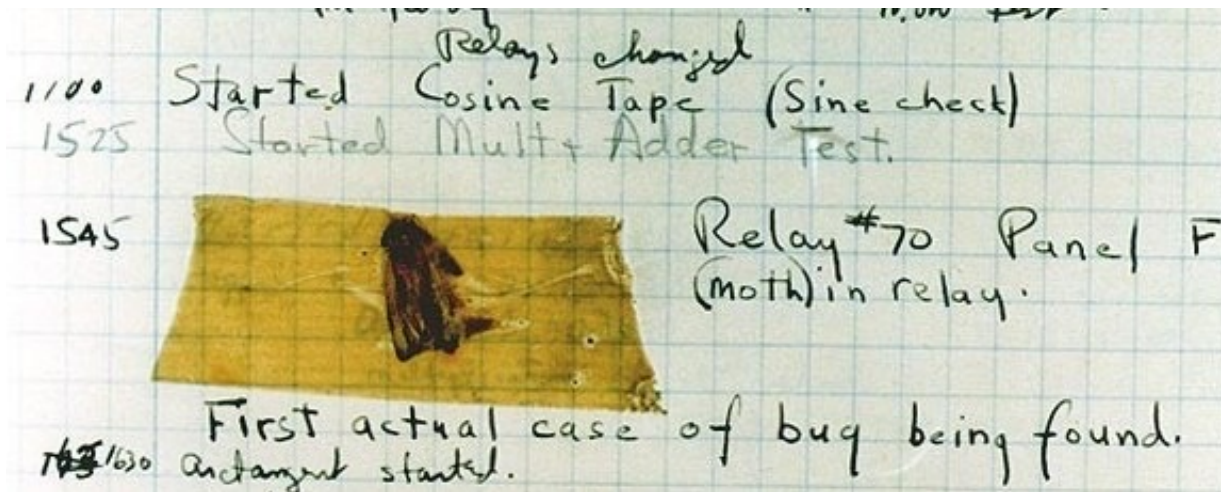 Relays changed
1100 Started Cosine Tape (Sine check)
1525 Started Mult + Adder Test.
1545 Relay #70 Panel F
(moth) in relay.
First actual case of bug being found.
1630 arctangent started.